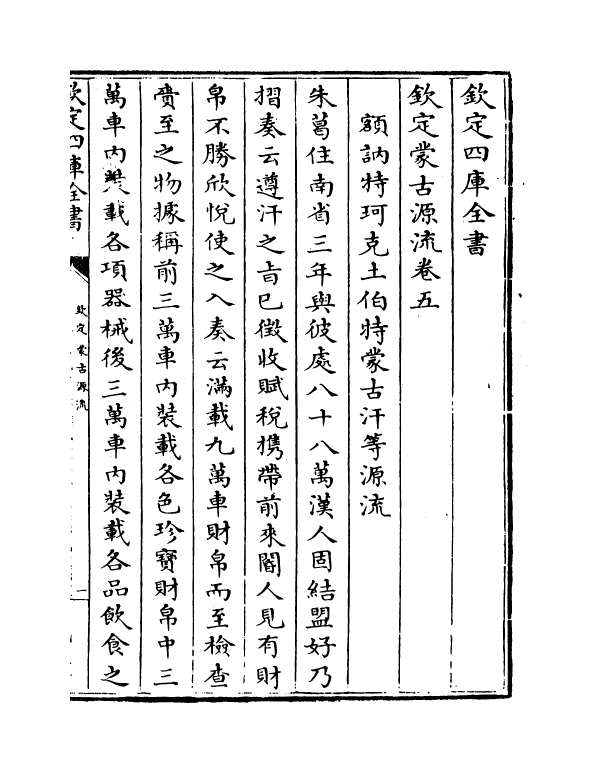 欽定四庫全書
欽定蒙古源流卷五
額訥特珂克土伯特蒙古汗等源流
朱葛住南省三年與彼處八十八萬漢人固結盟好乃
摺奏云遵汗之㫖已徵收賦稅携帶前來閽人見有財
帛不勝欣悅使之入奏云滿載九萬車財帛而至檢查
賫至之物據稱前三萬車内裝載各色珍寶財帛中三
萬車内裝載各項器械後三萬車内裝載各品飲食之
欽定四庫全書
欽定蒙古源流
一